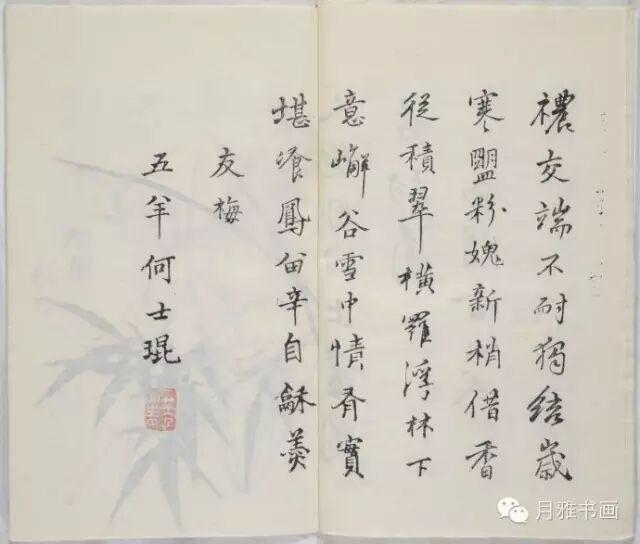 禯交端不耐獨結歲
寒盟粉媿新梢借香
從積翠橫羅浮林下
意嶰谷雪中情有實
堪飡鳳留辛自龢羹
友梅
五羊何士琨
月雅书画